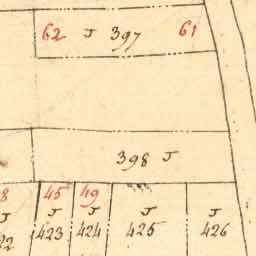 62 J 397 61
398 J
8 45 49
J J J J J
22 423 424 425 426